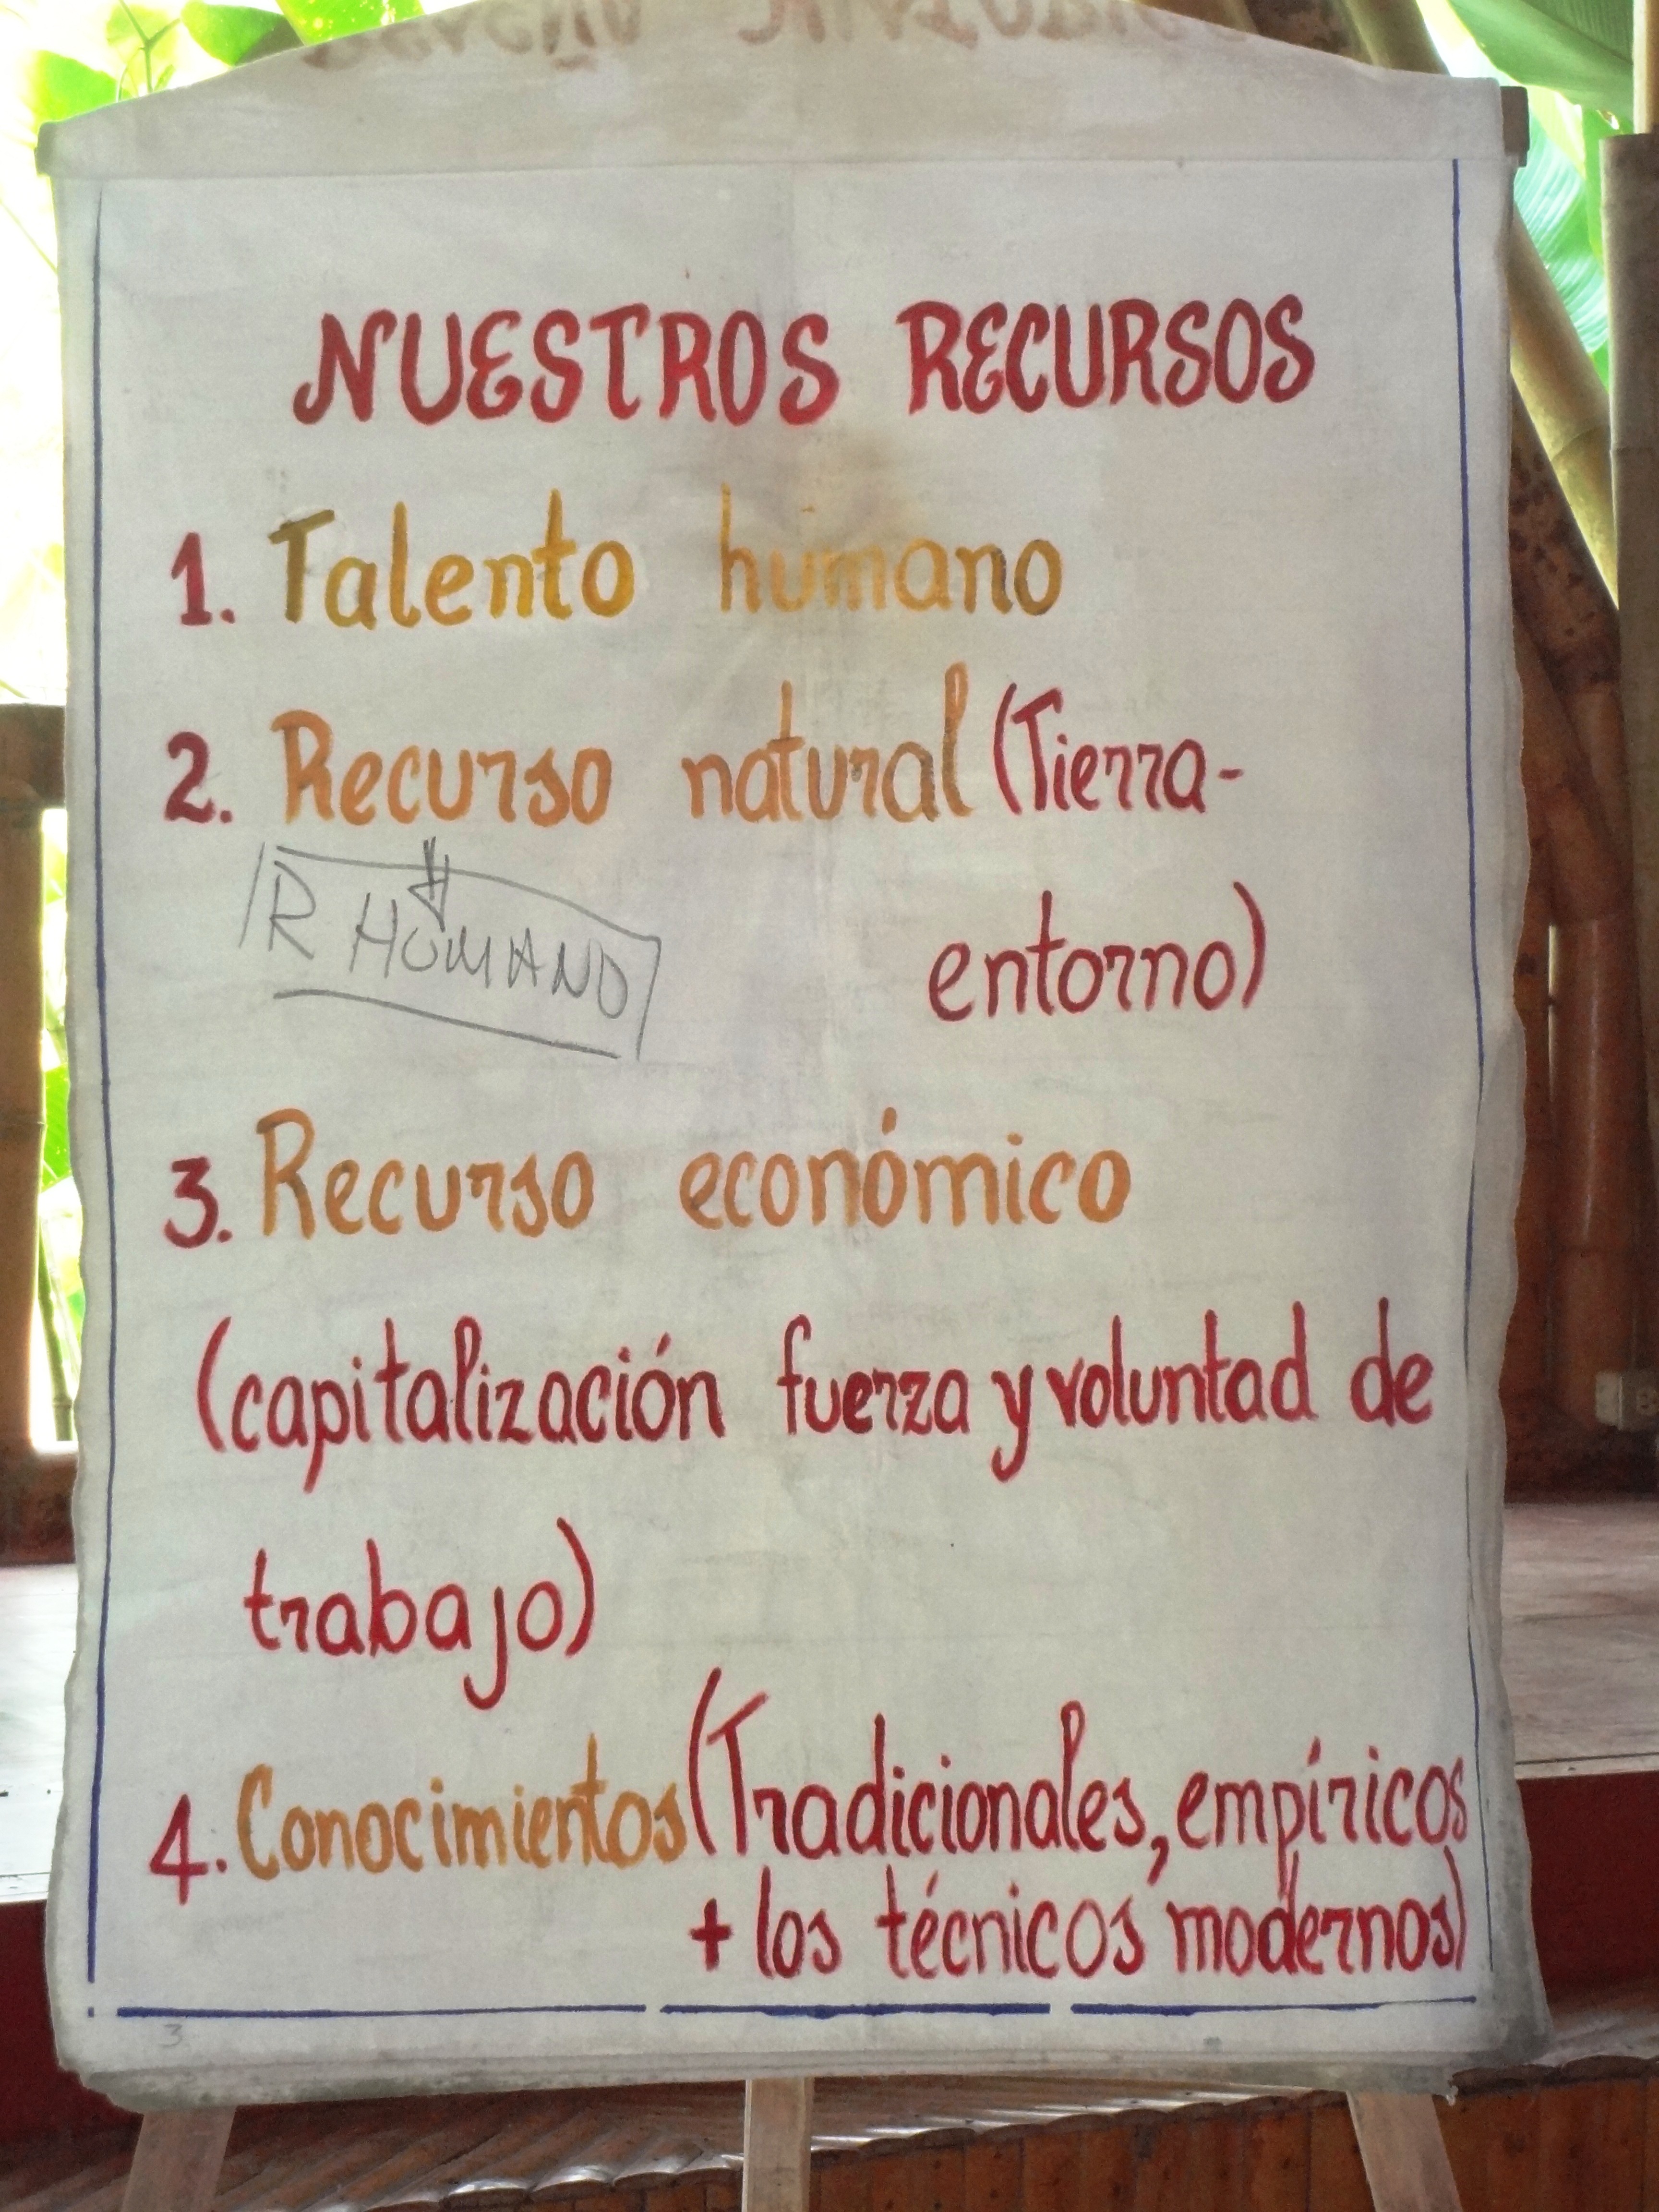 NUESTROS RECURSOS
1. Talento humano
2. Recurso natural (Tierra-
entorno)
R HUMANO
3. Recurso económico
(capitalización fuerza y voluntad de
trabajo)
4. Conocimientos (Tradicionales, empíricos
+ los técnicos modernos)
3